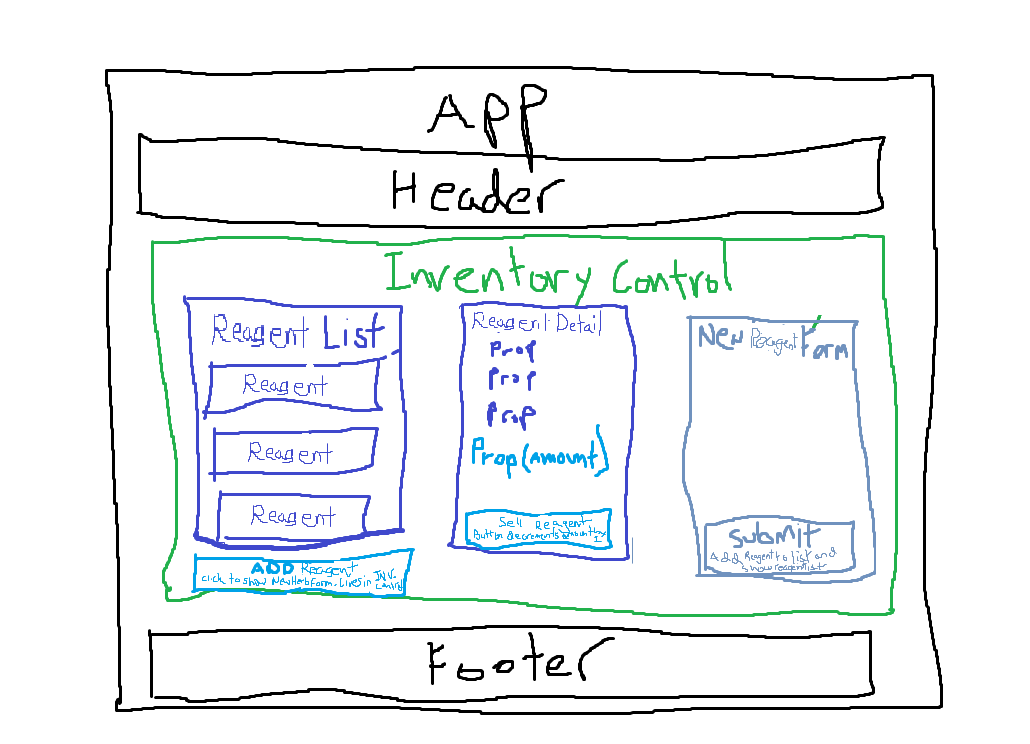 APP
Header
Inventory Control
Reagent List
Reagent
Reagent
Reagent
ADD Reagent
click to show NewHerbForm. Lives in INV. Control
Reagent Detail
Prop
Prop
Prop
Prop (Amount)
Sell Reagent
Button decrements amount by 1
New Reagent Form
Submit
Add Reagent to list and
show reagent list
Footer